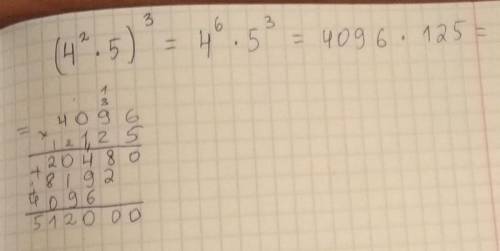 (4² · 5)³ = 4⁶ · 5³ = 4096 · 125 =
1
3
= 4096
× 125
20480
+ 8192
4096
512000